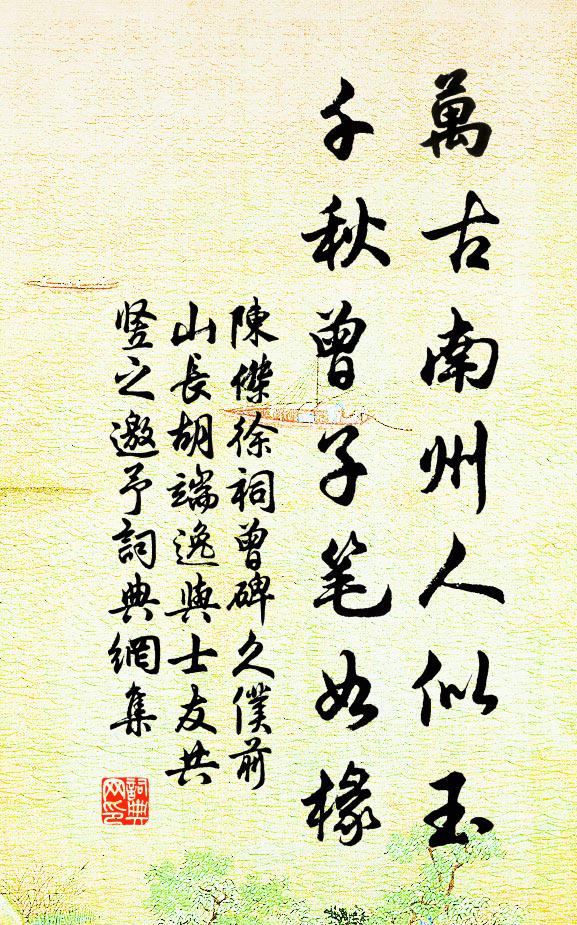 萬古南州人似玉
千秋曾子笔如椽
陳傑徐祠曾碑久僕前
山長胡端逸與士友共
竖之邀予詞典網集
詞典网印